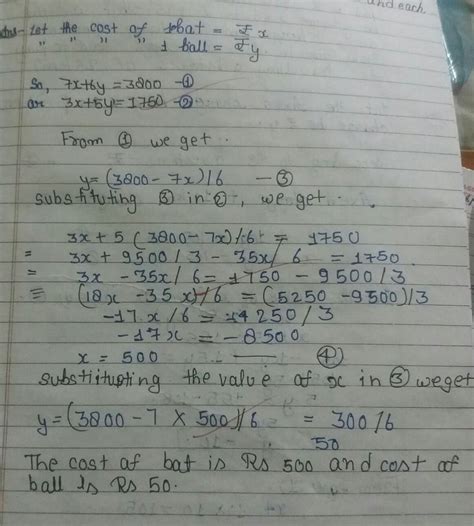 and each.
Ans- Let the cost of 1 bat = ₹ x
" " " " 1 ball = ₹ y
So, 7x+6y = 3800 - ①
3x+5y = 1750 - ②
From ① we get .
y = (3800 - 7x)/6 - ③
substituting ③ in ②, we get .
3x + 5 (3800-7x)/6 = 1750
= 3x + 9500/3 - 35x/6 = 1750.
= 3x - 35x/6 = 1750 - 9500/3
= (18x - 35x)/6 = (5250 - 9500)/3
-17x/6 = -4250/3
-17x = -8500
x = 500 — ④
substitutiting the value of x in ③ we get
y = (3800 - 7 × 500)/6 = 300/6
50
The cost of bat is Rs 500 and cost of
ball is Rs 50.